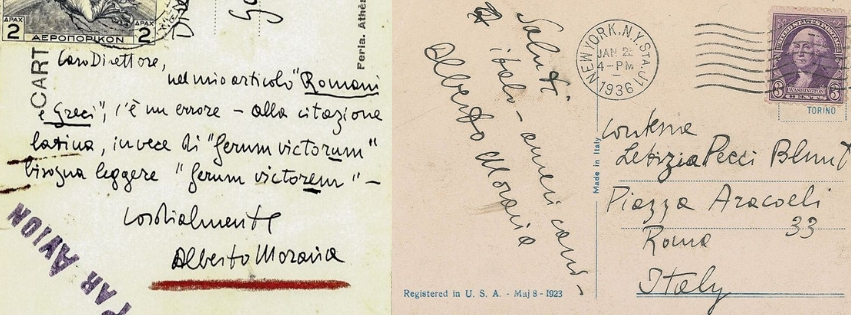 ΔΡΑΧ
2
ΔΡΑΧ
2
ΑΕΡΟΠΟΡΙΚΟΝ
CART
Feria. Athè
Caro Direttore,
nel mio articolo "Romani
e Greci", c'è un errore – alla citazione
latina, invece di "ferum victorum"
bisogna leggere "ferum victorem" –
Cordialmente
Alberto Moravia
PAR AVION
Saluti
italo-americani –
Alberto Moravia
NEW YORK, N.Y. STA. J1
JAN 2
4-PM
1936
UNITED STATES POSTAGE
WASHINGTON
3 CENTS 3
TORINO
Made in Italy
Contessa
Letizia Pecci Blunt
Piazza Aracoeli
33
Roma
Italy
Registered in U. S. A. - Maj 8 - 1923